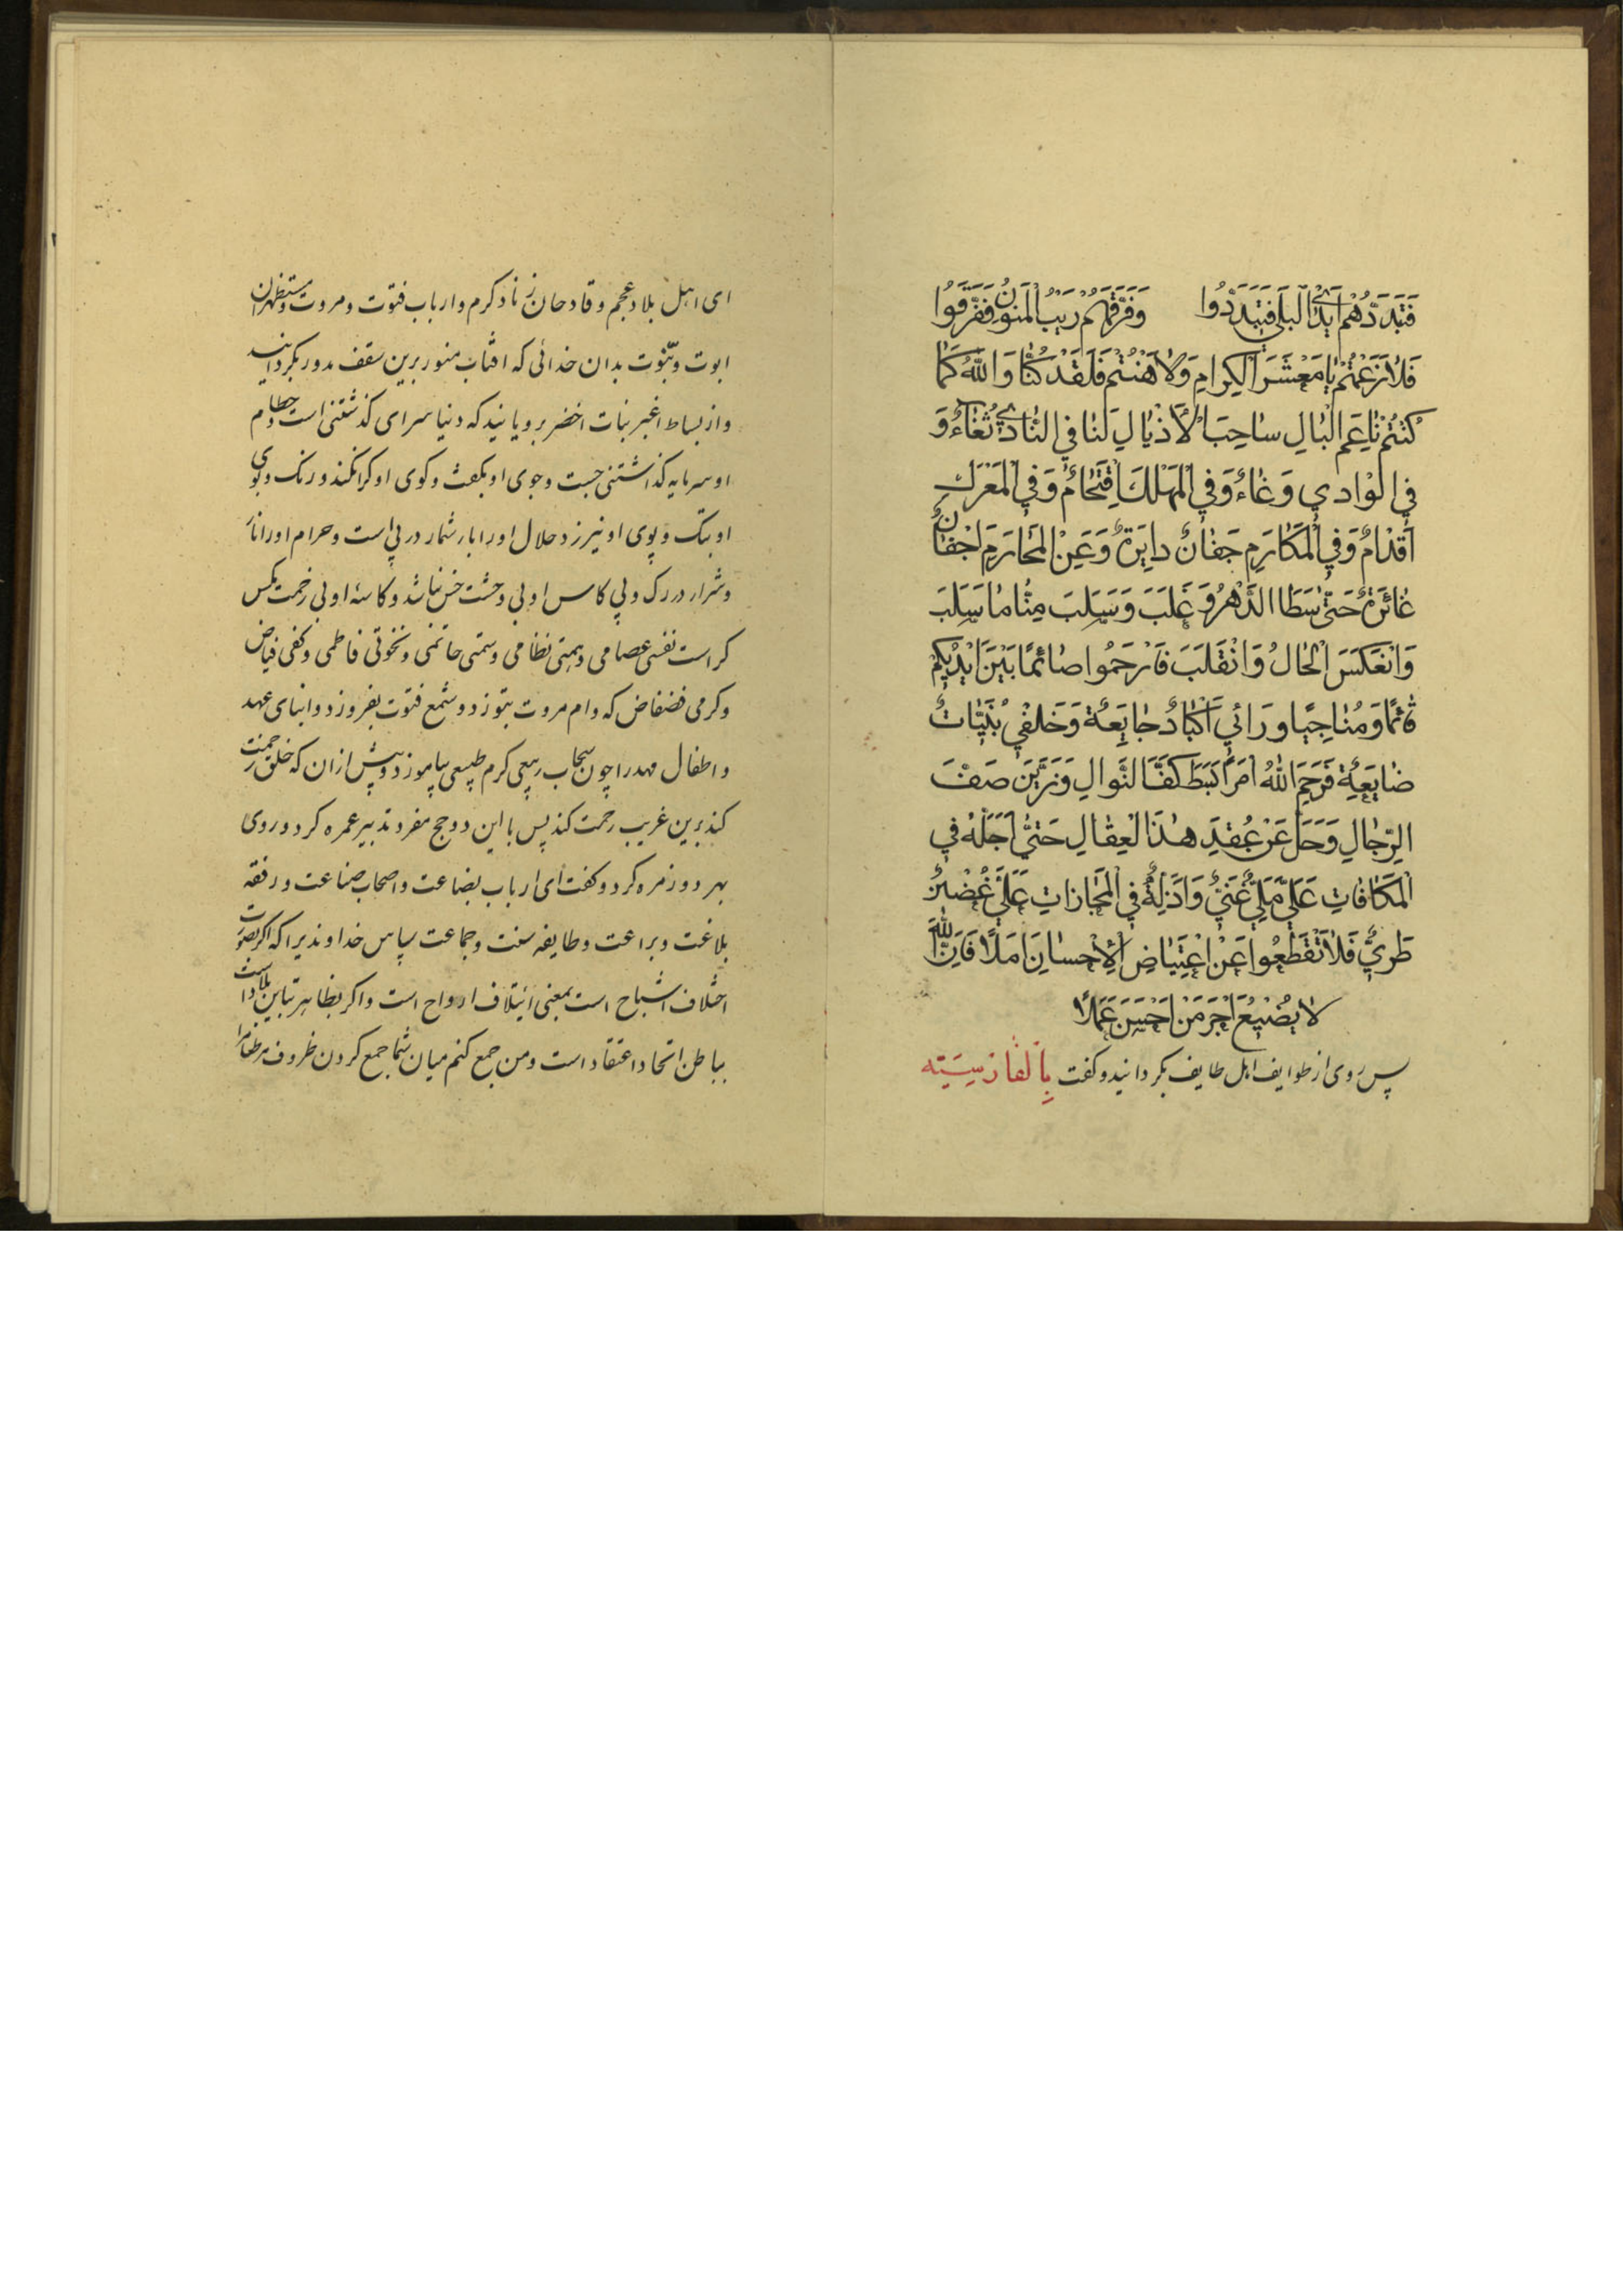 فَتَبَدَّدُهُمْ اَيْدَيِ الْبَلَی فَتَبَدَّدُوا وَفَرَّقَهُمْ رَيْبُ الْمَنُونِ فَفَرَّقُوا
فَلَازَعَمْتُمْ يا مَعْشَرَ الْكِرامِ وَلا هَنْتُمْ فَلَقَدْ كُنَّا وَاللهُ كَمَا
كُنْتُمْ نٰاعِمَ الْبٰالِ ساحِبَ الْاَذْيٰالِ لَنٰا فِي النّٰادي ثُغٰاءٌ وَ
فِي الْوٰادي وَغٰاءٌ وَفِي الْمَهْلَكِ اِقْتِحٰامٌ وَفِي الْمَعْرَكِ
اَقْدٰامٌ وَفِي الْمَكٰارِمِ جَفٰانٌ دايِرَةٌ وَعَنِ الْمَحٰارِمِ اَجْفٰانٌ
غٰائِرَةٌ حَتّیٰ سَطَا الدَّهْرُ وَ غَلَبَ وَسَلَبَ مِنّٰا مٰا سَلَبَ
وَانْعَكَسَ الْحٰالُ وَانْقَلَبَ فَارْحَمُوا صٰائمًا بَيْنَ اَيْدِيكُمْ
قٰائمًا وَ مُنٰاجِيًا وَرٰائي اَكْبٰادٌ جٰايِعَةٌ وَخَلْفي بُنَيّٰاتٌ
ضٰايِعَةٌ فَرَحِمَ اللهُ امْرَأً بَسَطَ كَفَّ النَّوالِ وَزَيَّنَ صَفَّ
الرِّجٰالِ وَحَلَّ عَنْ عُقَدِ هٰذَا الْعِقٰالِ حَتّیٰ اَجَلُهُ فِي
الْمُكٰافٰاتِ عَلیٰ مَلِيٍّ غَنِيٍّ وَاَدُلُّهُ فِي الْمُجٰازاتِ عَلیٰ غُصْنٍ
طَرِيٍّ فَلاتَقْطَعُوا عَنْ اِعْتِيٰاضِ الْاِحْسٰانِ اَمَلًا فَاِنَّ اللهَ
لا يُضيعُ اَجْرَ مَنْ اَحْسَنَ عَمَلًا
پس روی از طوایف اهل طایف بگردانید وگفت بِاَلفاز سِيَتِه
ای اهل بلاد عجم و قادحان زناد کرم و ارباب فتوت و مروت و مستظهران
ابوت و بنوت بدان خدائی که افتاب منور برین سقف مدور بکردانید
و از بساط اغبر نبات اخضر برویانید که دنیا سرای کذشتنی است و حطام
او سرمایه کذاشتنی جست وجوی او بکفت وکوی او کرا نکند و رنک وبوی
او بتک و پوی او نیرزد حلال او را بار شمار در پی است و حرام او را نار
وشرار در رک و پی کاس او بی وحشت خس نباشد و کاسه او بی زحمت مکس
کراست نفسی عصامی وهمتی نظامی و سمتی حاتمی و نخوتی فاطمی وکفی فیاض
وکرمی فضفاض که وام مروت بتوزد و شمع فتوت بفروزد و ابنای عهد
و اطفال مهد را چون سحاب ربیعی کرم طبیعی بیاموزد وپیش از ان که خلق رحمت
کند برین غریب رحمت کند پس با این دو حج مفرد تدبیر عمره کرد و روی
بهر دو زمره کرد و کفت ای ارباب بضاعت و اصحاب صناعت و رفقه
بلاغت و براعت و طایفه سنت وجماعت سپاس خداوندیرا که اکر بصورت
اختلاف اشباح است بمعنی ائتلاف ارواح است و اکر بظاهر تباین بلاد است
بباطن اتحاد اعتقاد است و من جمع کنم میان شما جمع کردن ظروف مر طعام را